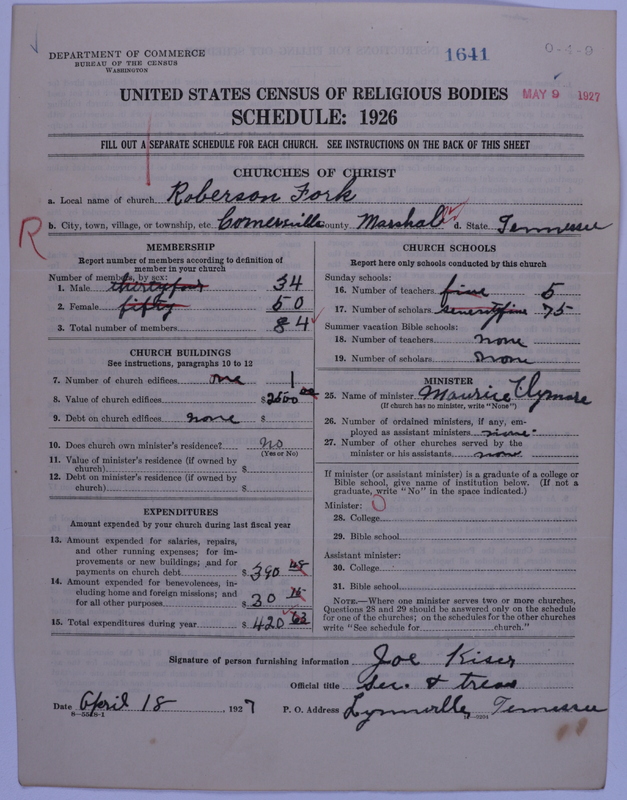 DEPARTMENT OF COMMERCE
BUREAU OF THE CENSUS
WASHINGTON
1641
0-4-9
UNITED STATES CENSUS OF RELIGIOUS BODIES
MAY 9 1927
SCHEDULE: 1926
FILL OUT A SEPARATE SCHEDULE FOR EACH CHURCH. SEE INSTRUCTIONS ON THE BACK OF THIS SHEET
CHURCHES OF CHRIST
a. Local name of church Roberson Fork
b. City, town, village, or township, etc. Cornersville County Marshal d. State Tennessee
R
MEMBERSHIP
Report number of members according to definition of
member in your church
Number of members, by sex:
1. Male thirty four 34
2. Female fifty 50
3. Total number of members 84
CHURCH BUILDINGS
See instructions, paragraphs 10 to 12
7. Number of church edifices one 1
8. Value of church edifices $2500 00
9. Debt on church edifices none $
10. Does church own minister's residence? No
(Yes or No)
11. Value of minister's residence (if owned by
church) $
12. Debt on minister's residence (if owned by
church) $
EXPENDITURES
Amount expended by your church during last fiscal year
13. Amount expended for salaries, repairs,
and other running expenses; for im-
provements or new buildings; and for
payments on church debt $390 48
14. Amount expended for benevolences, in-
cluding home and foreign missions; and
for all other purposes $30 15
15. Total expenditures during year $420 63
CHURCH SCHOOLS
Report here only schools conducted by this church
Sunday schools:
16. Number of teachers five 5
17. Number of scholars seventy five 75
Summer vacation Bible schools:
18. Number of teachers none
19. Number of scholars none
MINISTER
25. Name of minister Maurice Clymore
(If church has no minister, write "None")
26. Number of ordained ministers, if any, em-
ployed as assistant ministers none
27. Number of other churches served by the
minister or his assistants none
If minister (or assistant minister) is a graduate of a college or
Bible school, give name of institution below. (If not a
graduate, write "No" in the space indicated.)
Minister: O
28. College
29. Bible school
Assistant minister:
30. College
31. Bible school
NOTE.—Where one minister serves two or more churches,
Questions 28 and 29 should be answered only on the schedule
for one of the churches; on the schedules for the other churches
write "See schedule for church."
Signature of person furnishing information Joe Kiser
Official title Sec. & treas
Date April 18, 1927 P. O. Address Lynnville Tennessee
8—5518-1